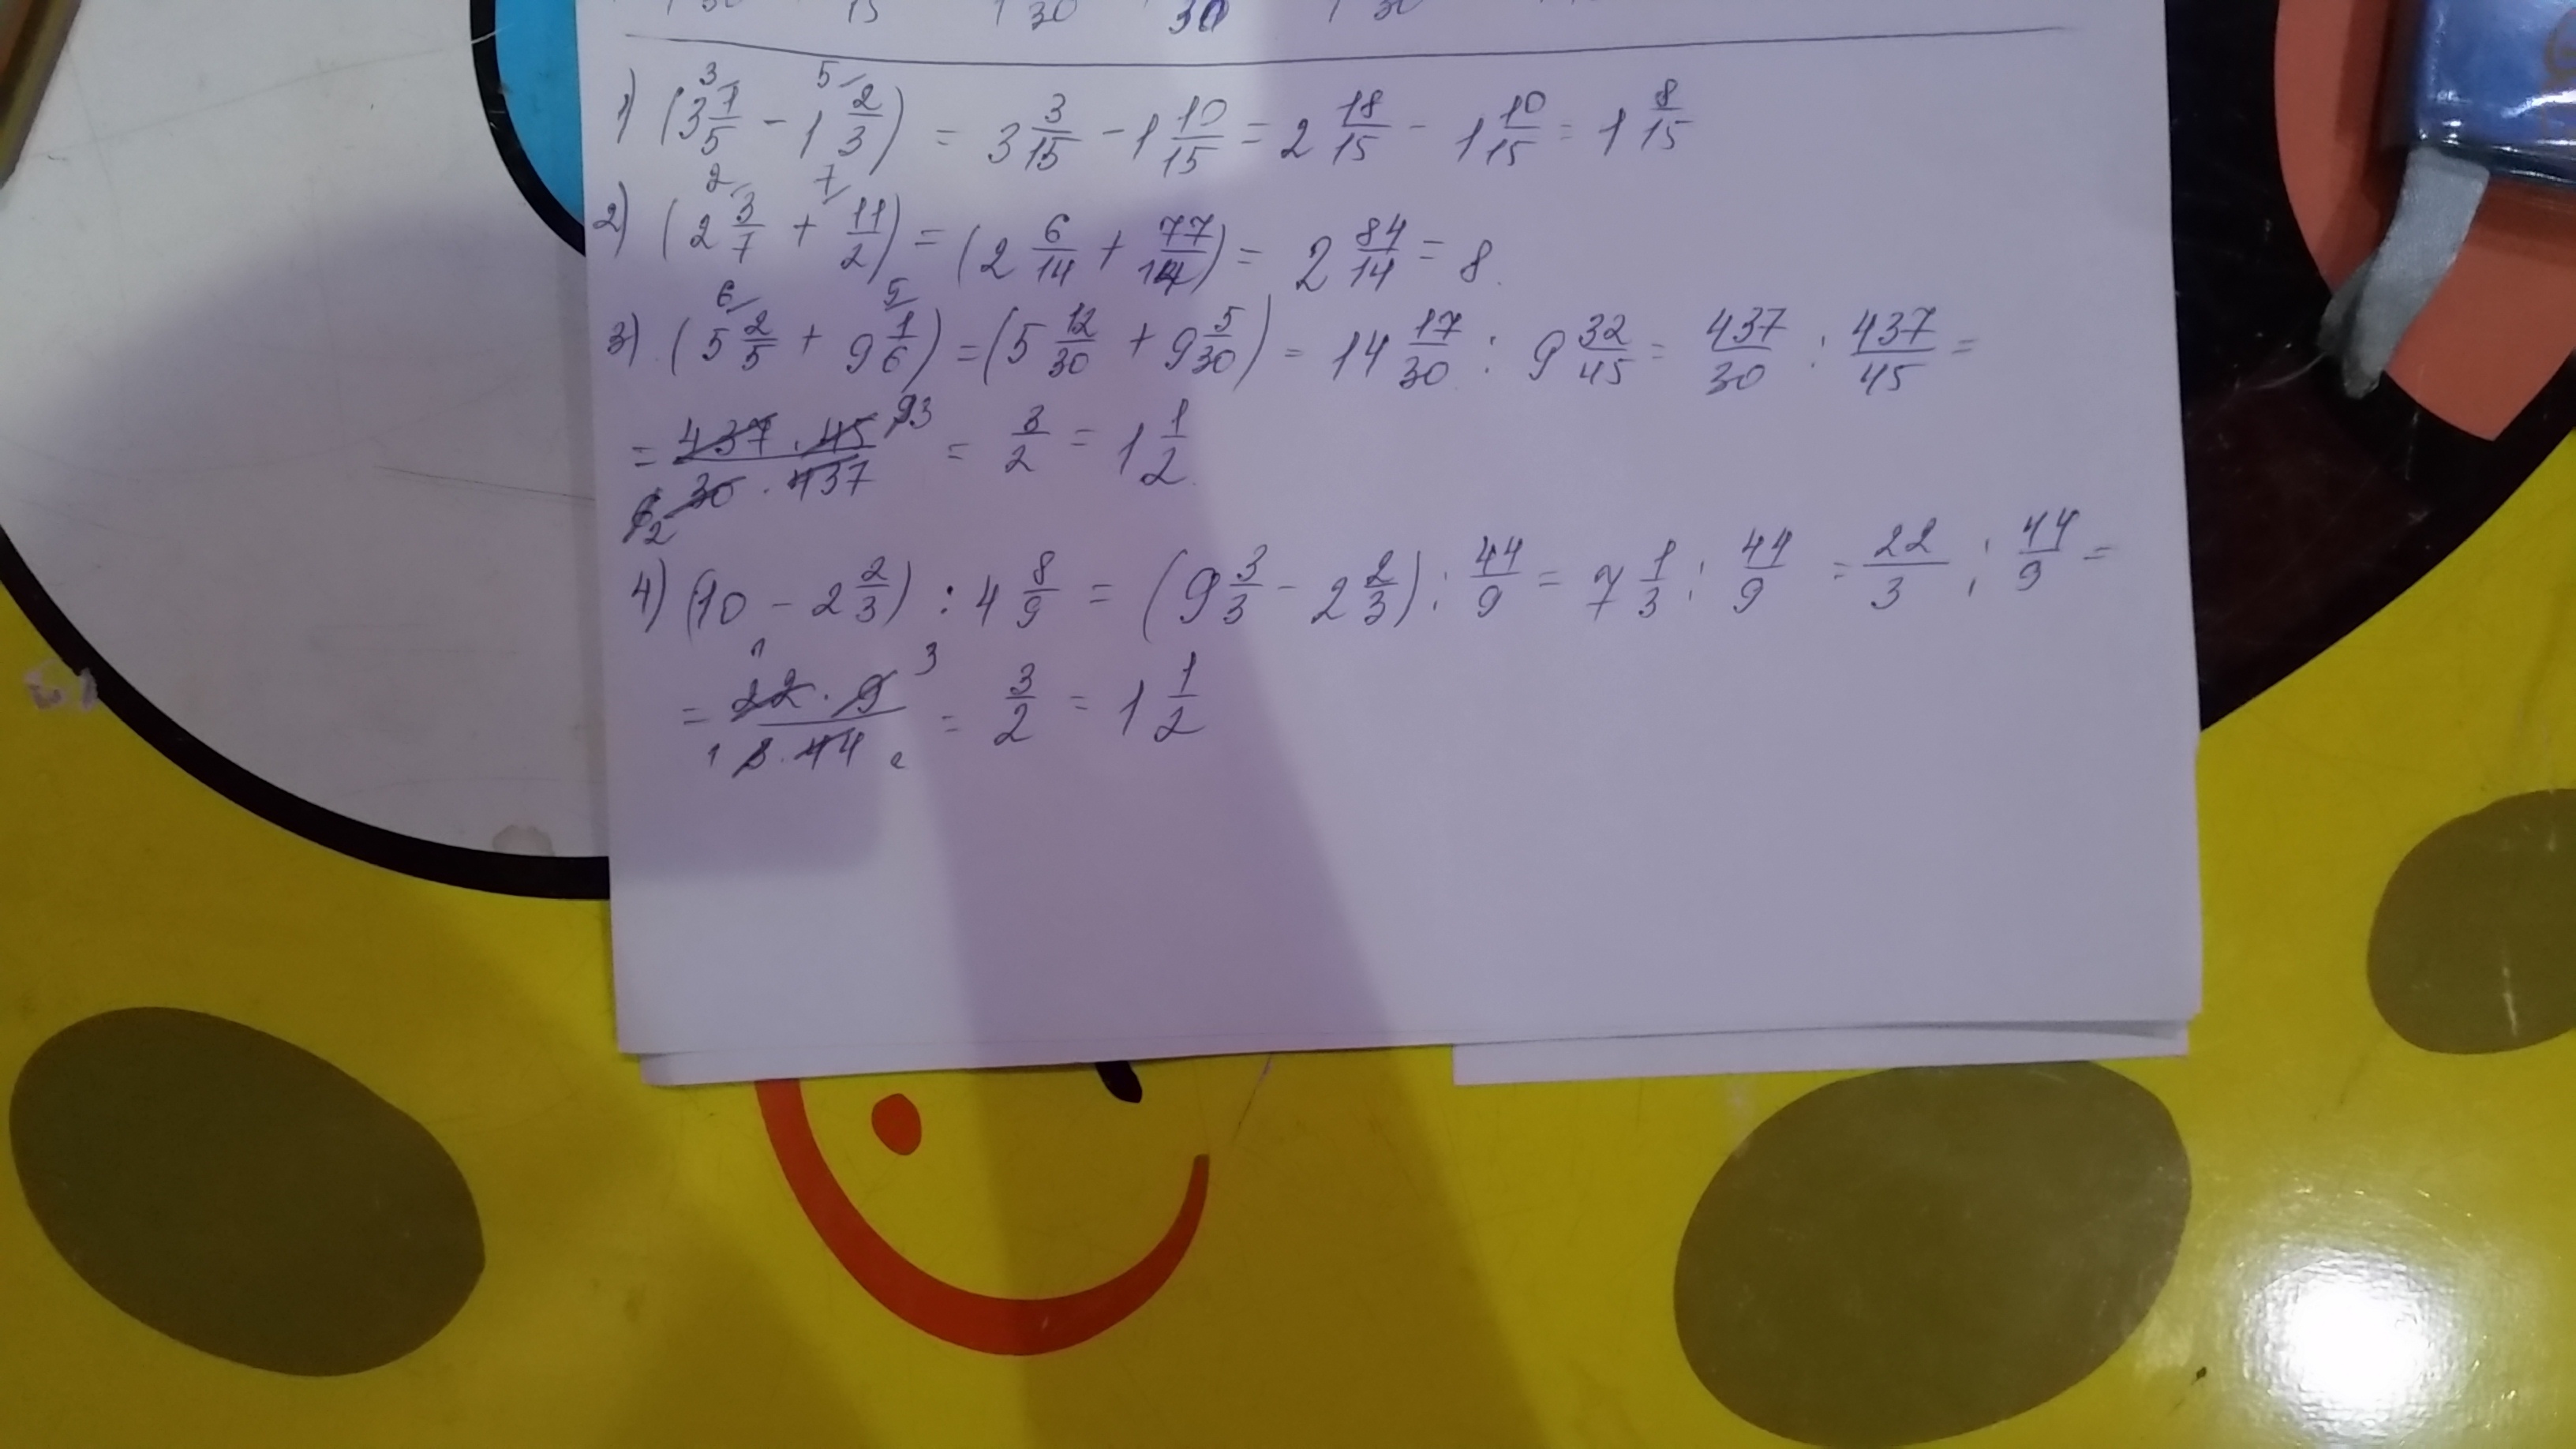 30 15 1 30 30 1 30
1) (3 1/5 - 1 2/3) = 3 3/15 - 1 10/15 = 2 18/15 - 1 10/15 = 1 8/15
2) (2 3/7 + 11/2) = (2 6/14 + 77/14) = 2 84/14 = 8.
3) (5 2/5 + 9 1/6) = (5 12/30 + 9 5/30) = 14 17/30 : 9 32/45 = 437/30 : 437/45 =
= 437 · 45 / 30 · 437 = 3/2 = 1 1/2.
4) (10 - 2 2/3) : 4 8/9 = (9 3/3 - 2 2/3) : 44/9 = 7 1/3 : 44/9 = 22/3 : 44/9 =
= 22 · 9 / 3 · 44 = 3/2 = 1 1/2